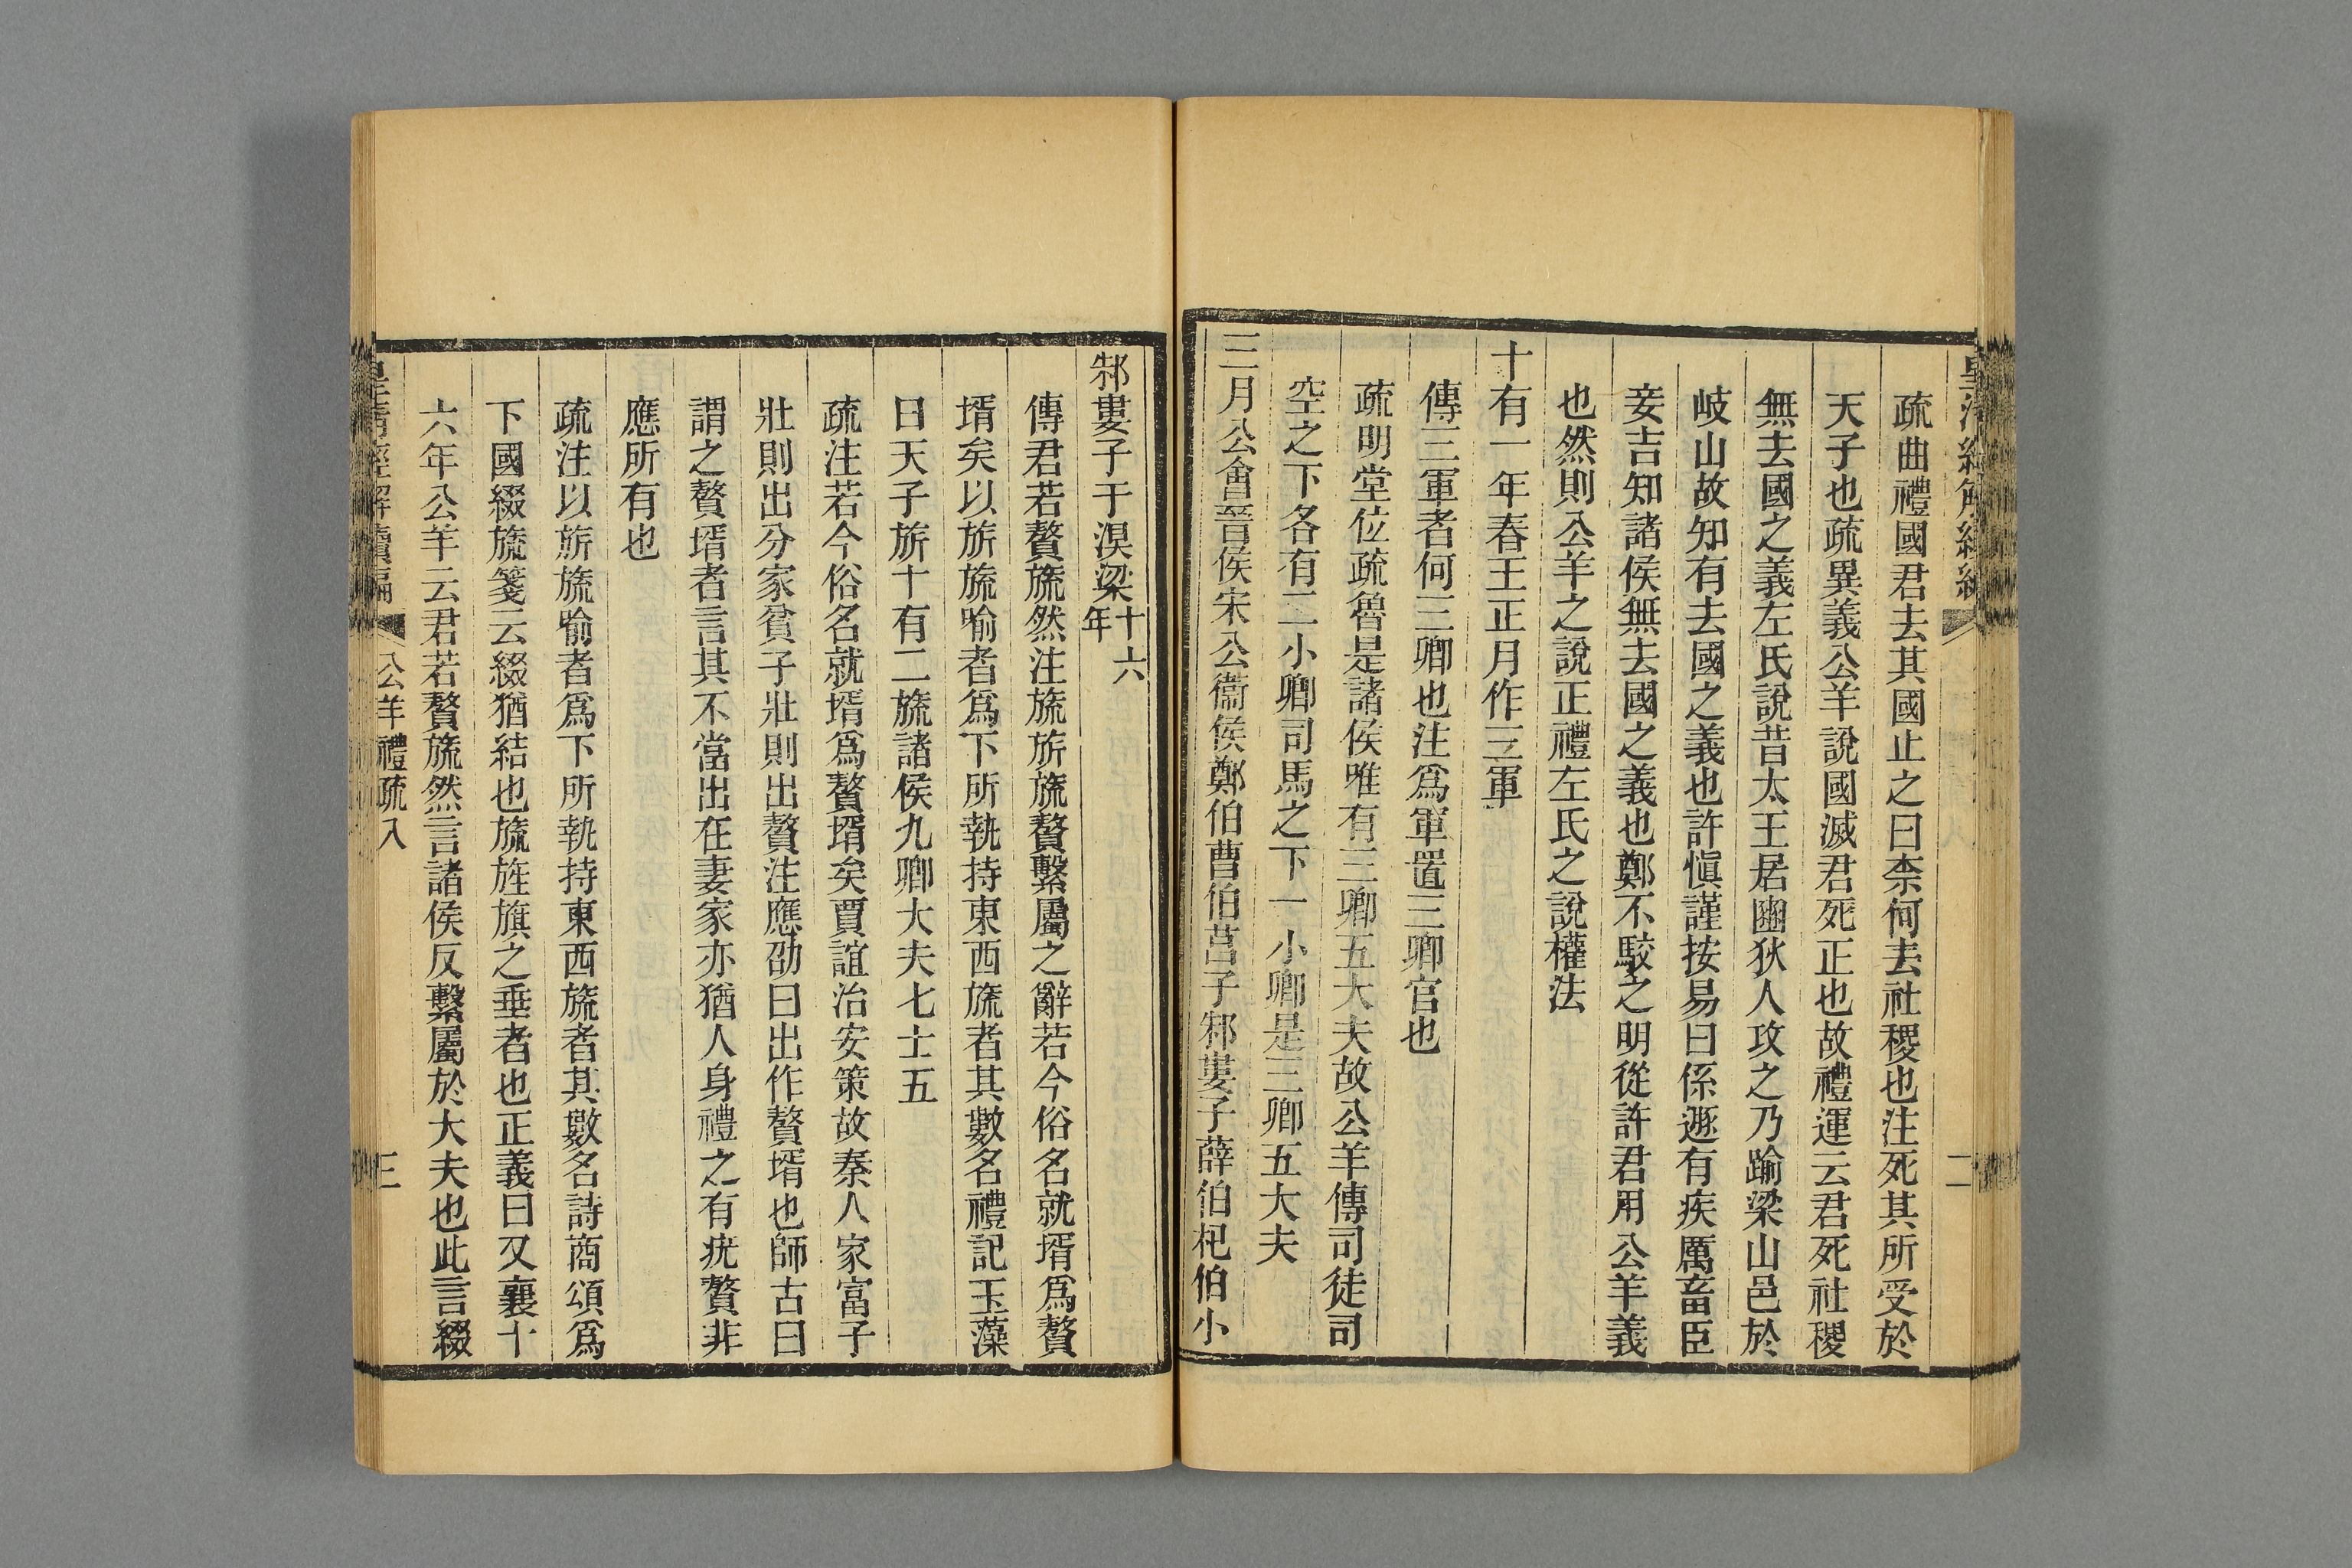 疏曲禮國君去其國止之曰柰何去社稷也注死其所受於
天子也疏異義公羊說國滅君死正也故禮運云君死社稷
無去國之義左氏說昔太王居豳狄人攻之乃踰梁山邑於
岐山故知有去國之義也許愼謹按易曰係遯有疾厲畜臣
妾吉知諸侯無去國之義也鄭不駮之明從許君用公羊義
也然則公羊之說正禮左氏之說權法
十有一年春王正月作三軍
傳三軍者何三卿也注爲軍置三卿官也
疏明堂位疏魯是諸侯唯有三卿五大夫故公羊傳司徒司
空之下各有二小卿司馬之下一小卿是三卿五大夫
三月公會晉侯宋公衞侯鄭伯曹伯莒子邾婁子薛伯杞伯小
二
邾婁子于湨梁十六年
傳君若贅旒然注旒旂旒贅繫屬之辭若今俗名就壻爲贅
壻矣以旂旒喻者爲下所執持東西旒者其數名禮記玉藻
曰天子旂十有二旒諸侯九卿大夫七士五
疏注若今俗名就壻爲贅壻矣賈誼治安策故秦人家富子
壯則出分家貧子壯則出贅注應劭曰出作贅壻也師古曰
謂之贅壻者言其不當出在妻家亦猶人身禮之有疣贅非
應所有也
疏注以旂旒喻者爲下所執持東西旒者其數名詩商頌爲
下國綴旒箋云綴猶結也旒旌旗之垂者也正義曰又襄十
六年公羊云君若贅旒然言諸侯反繫屬於大夫也此言綴
皇清經解續編 公羊禮疏八 三